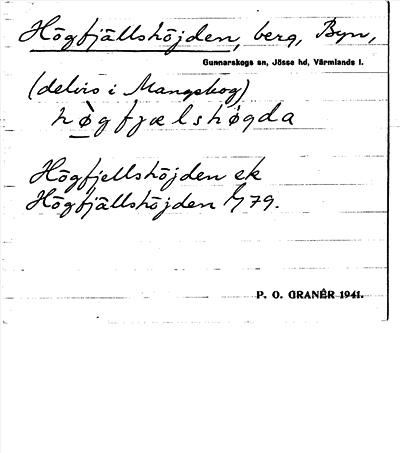 Högfjällshöjden, berg, Byn,
Gunnarskogs sn, Jösse hd, Värmlands l.
(delvis i Mangskog)
hø̀gfjælshøgda
Högfjellshöjden ek
Högfjällshöjden 79.
P. O. GRANÉR 1941.